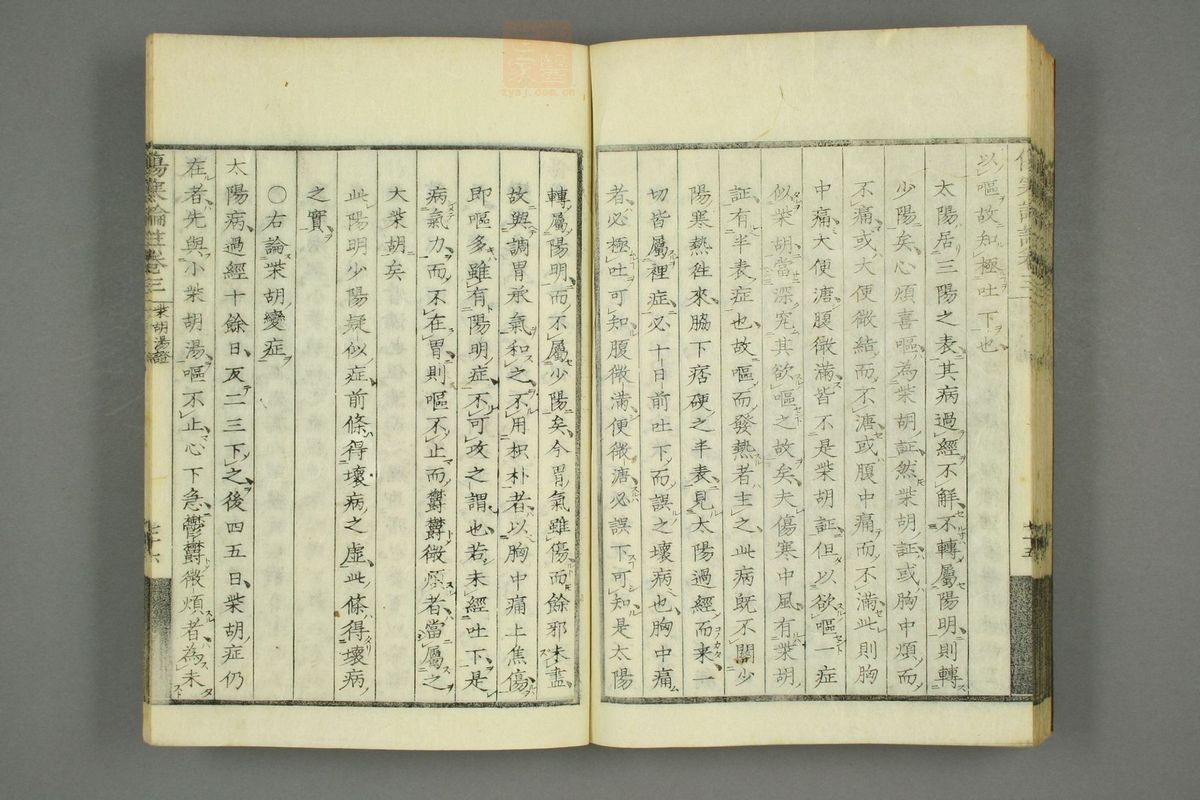 以嘔故知極吐下也
太陽居三陽之表其病過經不解不轉屬陽明則轉
少陽矣心煩喜嘔為柴胡証然柴胡証或胸中煩而
不痛或大便微結而不溏或腹中痛而不滿此則胸
中痛大便溏腹微滿皆不是柴胡証但以欲嘔一症
似柴胡當深究其欲嘔之故矣夫傷寒中風有柴胡
証有半表症也故嘔而發熱者主之此病既不關少
陽寒熱往來脇下痞硬之半表見太陽過經而来一
切皆屬裡症必十日前吐下而誤之壞病也胸中痛
者必極吐可知腹微滿便微溏必誤下可知是太陽
轉屬陽明而不屬少陽矣今胃氣雖傷而餘邪未盡
故與調胃承氣和之不用枳朴者以胸中痛上焦傷
即嘔多雖有陽明症不可攻之謂也若未經吐下是
病氣力而不在胃則嘔不止而鬱鬱微煩者當屬之
大柴胡矣
此陽明少陽疑似症前條得壞病之虛此條得壞病
之實
○右論柴胡變症
太陽病過經十餘日反二三下之後四五日柴胡症仍
在者先與小柴胡湯嘔不止心下急鬱鬱微煩者為未
傷寒論註卷三
柴胡湯證